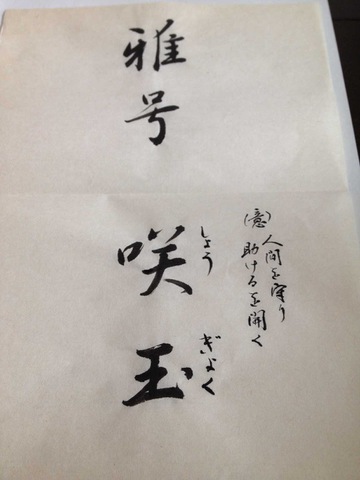 雅号
咲玉
しょう
ぎょく
(意)人間を守り
助けるを開く